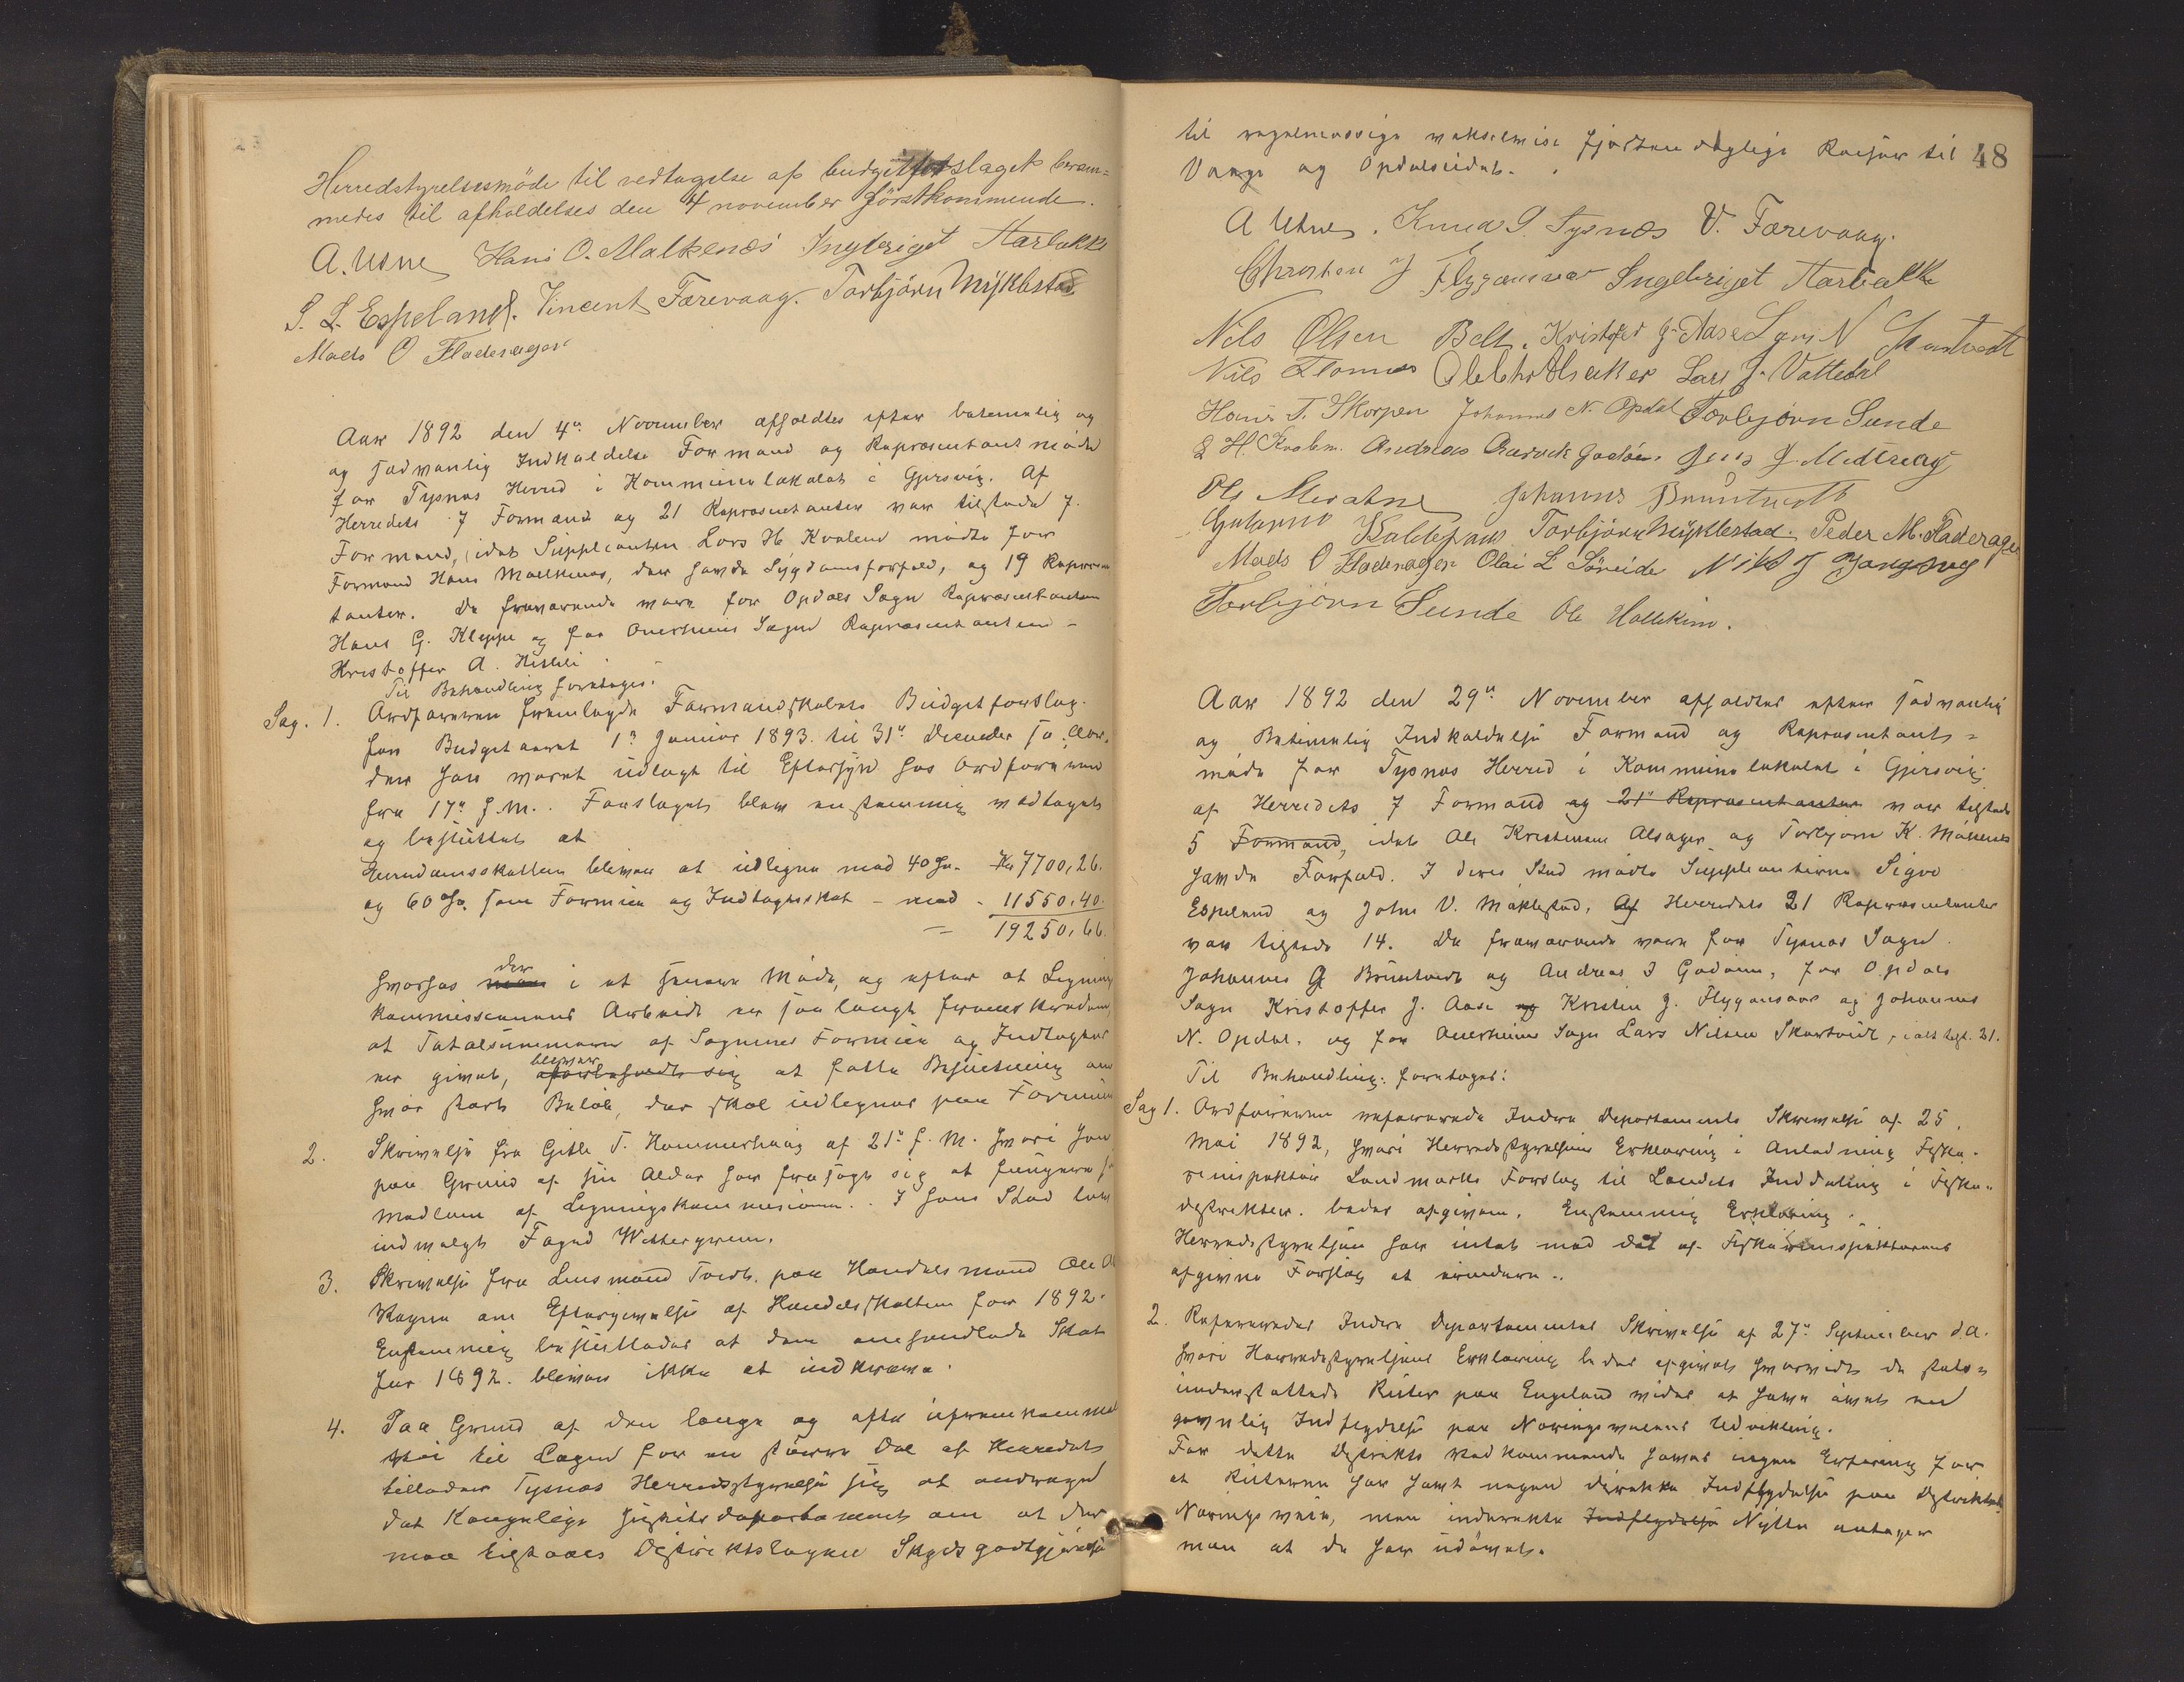 Herredstyrelsesmöde til vedtagelse af budgetforslaget beram=
medes til afholdelses den 4 november förstkommende.
A. Usne Hans O. Malkenes Ingebrigt Aarbakke
S. L. Espeland. Vincent Færevaag. Torbjörn Myklestad
Mads O Fladerager
Aar 1892 den 4de November afholdtes efter betimelig og
og sædvanlig Indkaldelse Formand og Repræsentantmöde
for Tysnæs Herred i Kommunelokalet i Gjersvig. Af
Herredets 7 Formænd og 21 Repræsentanter var tilstede 7
Formænd, idet Suppleanten Lars H. Kvalem mödte for
Formand Hans Malkenes, der havde Sygdomsforfald, og 19 Repræsen
tanter. De fraværende vare for Opdals Sogn Repræsentanten
Hans G. Kleppe og for Onerheims Sogn Repræsentanten
Kristoffer A.
Til Behandling foretoges:
Sag. 1. Ordföreren fremlagde Formandskabets Budgetforslag
for Budgetaaret 1ste Januar 1893 til 31te December s. Aar,
der har været udlagt til Eftersyn hos Ordföreren
fra 17de f. M. Forslaget blev enstemmig vedtaget
og besluttet at
Eiendomsskatten bliver at udligne med 40 % Kr 7700,26.
og 60 % som Formue og Indtægtsskat - med - 11550,40.
19250,66.
hvorhos der i et senere Möde, og efter at Ligning
kommissionens Arbeide er saa langt fremskreden,
at Totalsummerne af Sognenes Formue og Indtægter
er givet, bliver at fatte Beslutning om
hvor stort Belöb, der skal udlignes paa Formue
2. Skrivelse fra Gitle T. Hommerhaug af 21de f. M. hvori han
paa Grund af sin Alder har frasagt sig at fungere s
Medlem af Ligningskommissionen. I hans Sted blev
indvalgt Foged Wettergreen.
3. Skrivelse fra Lensmand Tveit paa Handelsmand Ole
Vegne om Eftergivelse af Handelsskatten for 1892.
Enstemmig besluttedes at den omhandlede Skat
for 1892 bliver ikke at indkræve.
4. Paa Grund af den lange og ofte ufremkommel
Vei til Lægen for en större Del af Herredet
tillader Tysnæs Herredsstyrelse sig at andrage
det Kongelige Justitsdepartement om at der
maa tilstaaes Distriktslægen Skydsgodtgjörelse
48
til regelmæssige vekselvise fjorten daglige Reiser til
Vaage og Opdalseidet.
A Usne. Knud G Tysnæs V. Færevaag.
Christen J Flygansvær Ingebrigt Aarbakke
Nils Olsen Belt. Kristofer J. Aase Lars N Skartveit
Nils Lars J. Vattedal
Hans T. Skorpen Johannes N. Opdal Torbjörn Sunde
L H Kvalem. Andreas Jens J. Midtvaag
Ole Johannes Bruntveit
Torbjörn Myklestad. Peder M. Fladerager
Mads O Fladerager Olai L Söreide Nils J
Torbjörn Sunde Ole
Aar 1892 den 29de November afholdtes efter sædvanlig
og Betimelig Indkaldelse Formand og Repræsentant=
möde for Tysnæs Herred i Kommunelokalet i Gjersvig;
af Herredets 7 Formænd og 21 Repræsentanter var tilstede
5 Formænd, idet Ole Kristensen Alsager og Torbjörn K. Möklestad
havde Forfald. I deres Sted mödte Suppleanterne Sigve
Espeland og John V. Möklestad, Af Herredets 21 Repræsentanter
var tilstede 14. De fraværende vare for Tysnæs Sogn
Johannes G Bruntveit og Andreas J Godöen, for Opdals
Sogn Kristoffer J. Aase og Kristen J. Flygansvær og Johannes
N. Opdal, og for Onerheims Sogn Lars Nilsen Skartveit, - ialt tilst. 21.
Til Behandling foretoges:
Sag 1. Ordföreren refererede Indre Departements Skrivelse af 25
Mai 1892, hvori Herredsstyrelsens Erklæring i Anledning Fiske-
riinspektör Landmarks Forslag til Landets Inddeling i Fiske-
distrikter bedes afgiven. Enstemmig Erklæring:
Herredsstyrelsen har intet mod det af Fiskeriinspektörens
afgivne Forslag at erindre.
2. Refereredes Indre Departementets Skrivelse af 27de September d.A.
hvori Herredsstyrelsens Erklæring bedes afgivet hvorvidt de stats=
understöttede Ruter paa England vides at have övet en
gavnlig Indflydelse paa Næringsveienes Udvikling.
For dette Distrikts Vedkommende haves ingen Erfaring for
at Ruterne har havt nogen direkte Indflydelse paa Distriktets
Næringsveie, men indirekte Indflydelse Nytte antager
man at de har udövet.